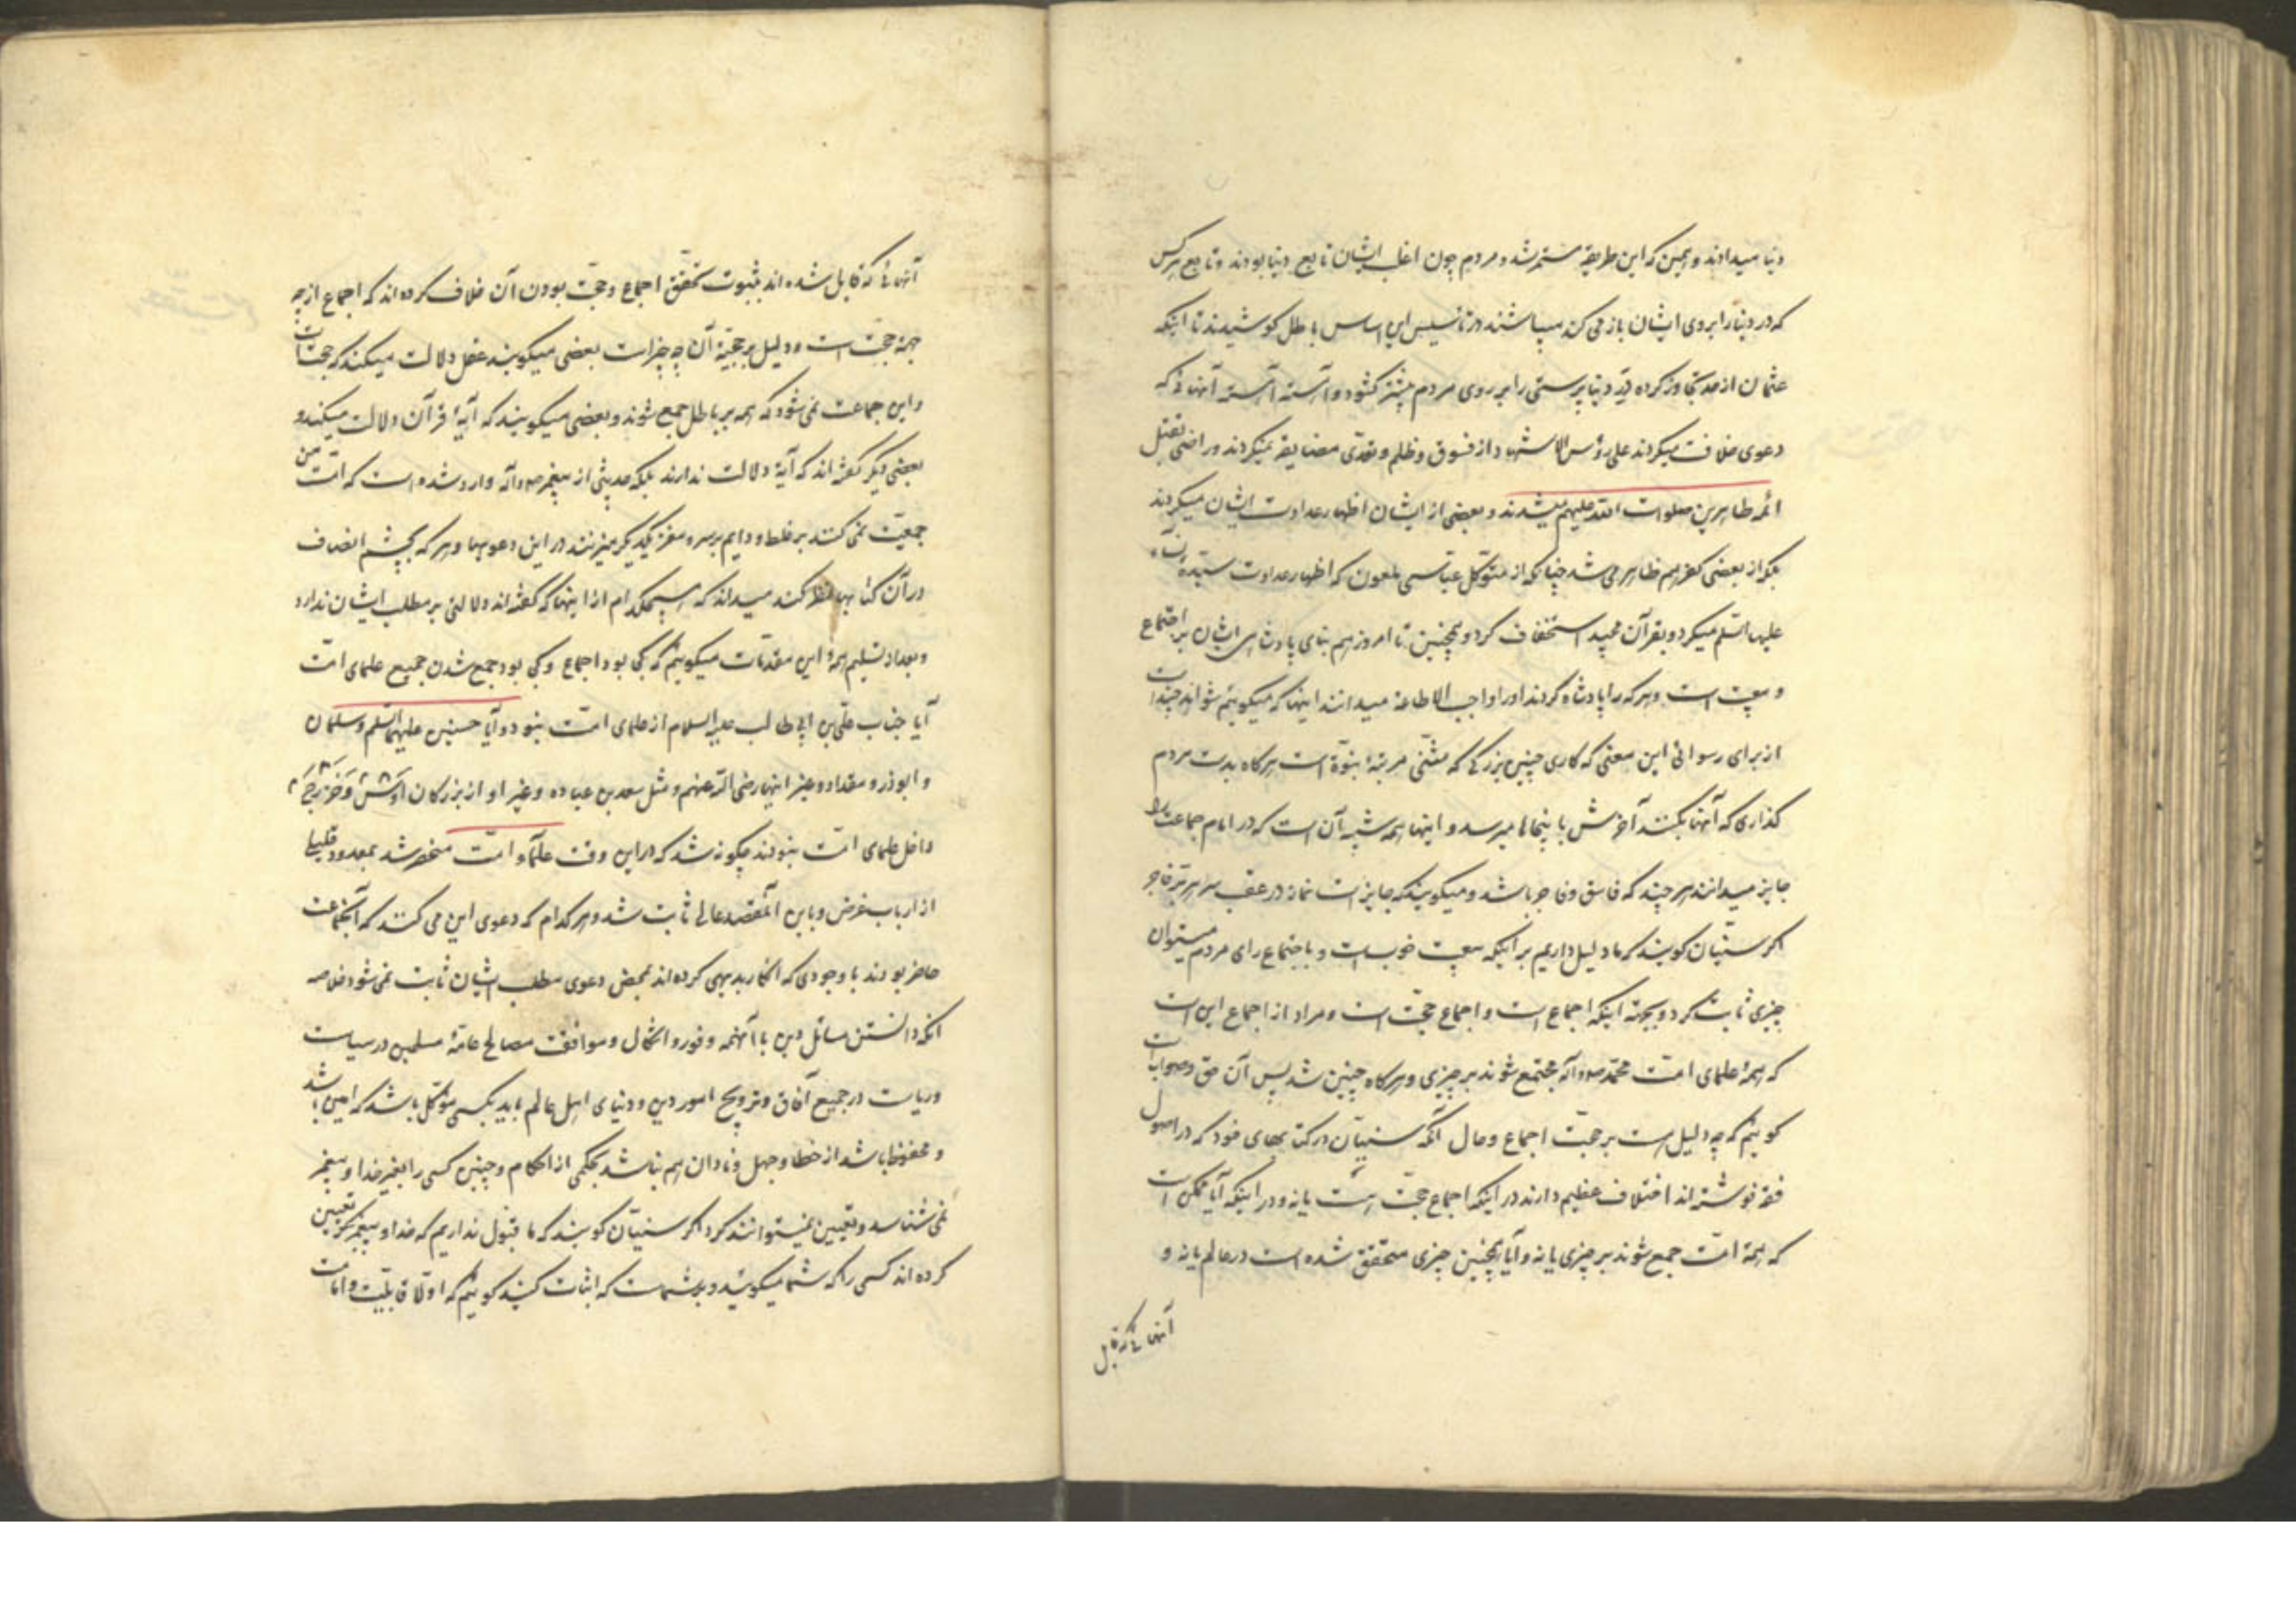 دنیا میدادند و همین که این طریقه مستمر شد و مردم چون اغلب ایشان تابع دنیا بودند و تابع هر کس
که در دنیا را بروی ایشان باز می کند میباشند در تاسیس این اساس باطل کوشیدند تا اینکه
عثمان از حد تجاوز کرده در دنیا پرستی را بر روی مردم بیشتر کشود و آهسته آهسته آنهائی که
دعوی خلافت میکردند علی رؤس الاشهاد از فسوق و ظلم و تعدّی مضایقه نمیکردند و راضی بقتل
ائمه طاهرین صلوات الله علیهم میشدند و بعضی از ایشان اظهار عداوت ایشان میکردند
بلکه از بعضی کفر هم ظاهر می شد چنانکه از متوکّل عباسی ملعون که اظهار عداوت سیّدة النساء
علیها السّلم میکرد و بقرآن مجید استخفاف کرد و همچنین تا امروز هم بنای پادشاهی ایشان بر اجتماع
و بیعت است و هر که را پادشاه کردند او را واجب الاطاعة میدانند اینها که میکوییم شواهد چند است
از برای رسوائی این معنی که کاری چنین بزرکی که مثنّی مرتبهٔ نبوّة است هرکاه بدست مردم
کذاری که آنها بکنند آخرش باینجاها میرسد و اینها همه شبیه آن است که در امام جماعت را
جایز میدانند هر چند که فاسق و فاجر باشد و میکویند که جایز است نماز در عقب هر برّ و فاجر
اکر سنّیان کویند که ما دلیل داریم بر اینکه بیعت خوبست و باجتماع رای مردم میتوان
چیزی ثابت کرد و بجهة اینکه اجماع است و اجماع حجّت است و مراد از اجماع این است
که همهٔ علمای امّت محمّد ص و آله مجتمع شوند بر چیزی و هرکاه چنین شد پس آن حق و صوابست
کوییم که چه دلیل است بر حجّت اجماع و حال آنکه سنیّان در کتابهای خود که در اصول
فقه نوشته اند اختلاف عظیم دارند در اینکه اجماع حجّت است یا نه و در اینکه آیا ممکن است
که همهٔ امّت جمع شوند بر چیزی یا نه و آیا همچنین چیزی متحقق شده است در عالم یا نه و
آنهائی که قایل
آنهائی که قایل شده اند بثبوت تحقّق اجماع و حجّت بودن آن خلاف کرده اند که اجماع از چه
جهة حجّت است و دلیل بر حجیّة آن چه چیز است بعضی میکویند عقل دلالت میکند که حجّت است
و این جماعت نمی شود که همه بر باطل جمع شوند و بعضی میکویند که آیهٔ قرآن دلالت میکند و
بعضی دیکر کفته اند که آیة دلالت ندارند بلکه حدیثی از پیغمبر ص و آله وارد شده است که امّت من
جمعیّت نمی کنند بر غلط و دایم بر سر و مغز یکدیکر میزنند در این دعویها و هر که بچشم انصاف
در آن کتابها نظر کند میداند که هیچکدام از اینها که کفته اند دلالتی بر مطلب ایشان ندارد
و بعد از تسلیم همهٔ این مقدمات میکوییم که کی بود اجماع و کی بود جمع شدن جمیع علمای امّت
آیا جناب علی بن ابی طالب علیه السلام از علمای امّت نبود و آیا حسنین علیهما السّلم و سلمان
و ابوذر و مقداد و غیر اینها رضی الله عنهم و مثل سعد بن عباده و غیر او از بزرکان اوس و خزرج
داخل علمای امّت نبودند چکونه شد که در این وقت علماء امّت منحصر شد بمعدود قلیلی
از ارباب غرض و باین المقصد عالی ثابت شد و هر کدام که دعوی این می کنند که آنجماعت
حاضر بودند با وجودی که انکار بدیهی کرده اند بمحض دعوی مطلب ایشان ثابت نمی شود خلاصه
آنکه دانستن مسائل دین با آنهمه وفور و اشکال و موافقت مصالح عامّهٔ مسلمین در سیاست
و ریاست در جمیع آفاق و ترویج امور دین و دنیای اهل عالم باید بکسی موکّل باشد که امین باشد
و محفوظ باشد از خطا و جهل و نادان هم نباشد بحکمی از احکام و چنین کسی را بغیر خدا و پیغمبر
نمی شناسد و تعیین نمیتوانند کرد اکر سنیّان کویند که ما قبول نداریم که خدا و پیغمبر تعیین
کرده اند کسی را که شما میکوئید و بر شماست که اثبات کنید کوییم که اوّلا قابلیّت و امامت